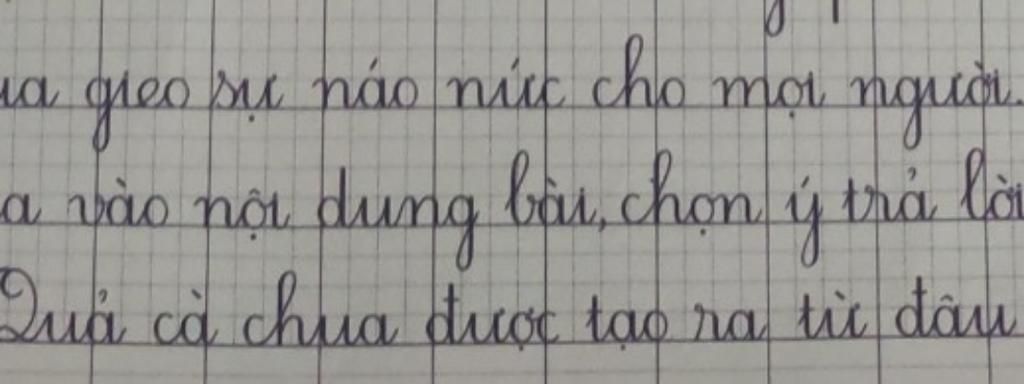 ua gieo sự náo nức cho mọi người.
a vào nội dung bài, chọn ý trả lời
Quả cà chua được tạo ra từ đâu